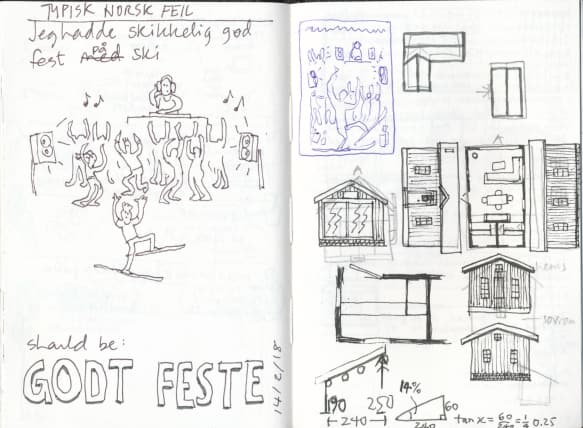 TYPISK NORSK FEIL
Jeg hadde skikkelig god
fest på ski
should be:
GODT FESTE
14/2/18
hems
190
250
240
14%
60
240
tan x = 60/240 = 1/4 0.25